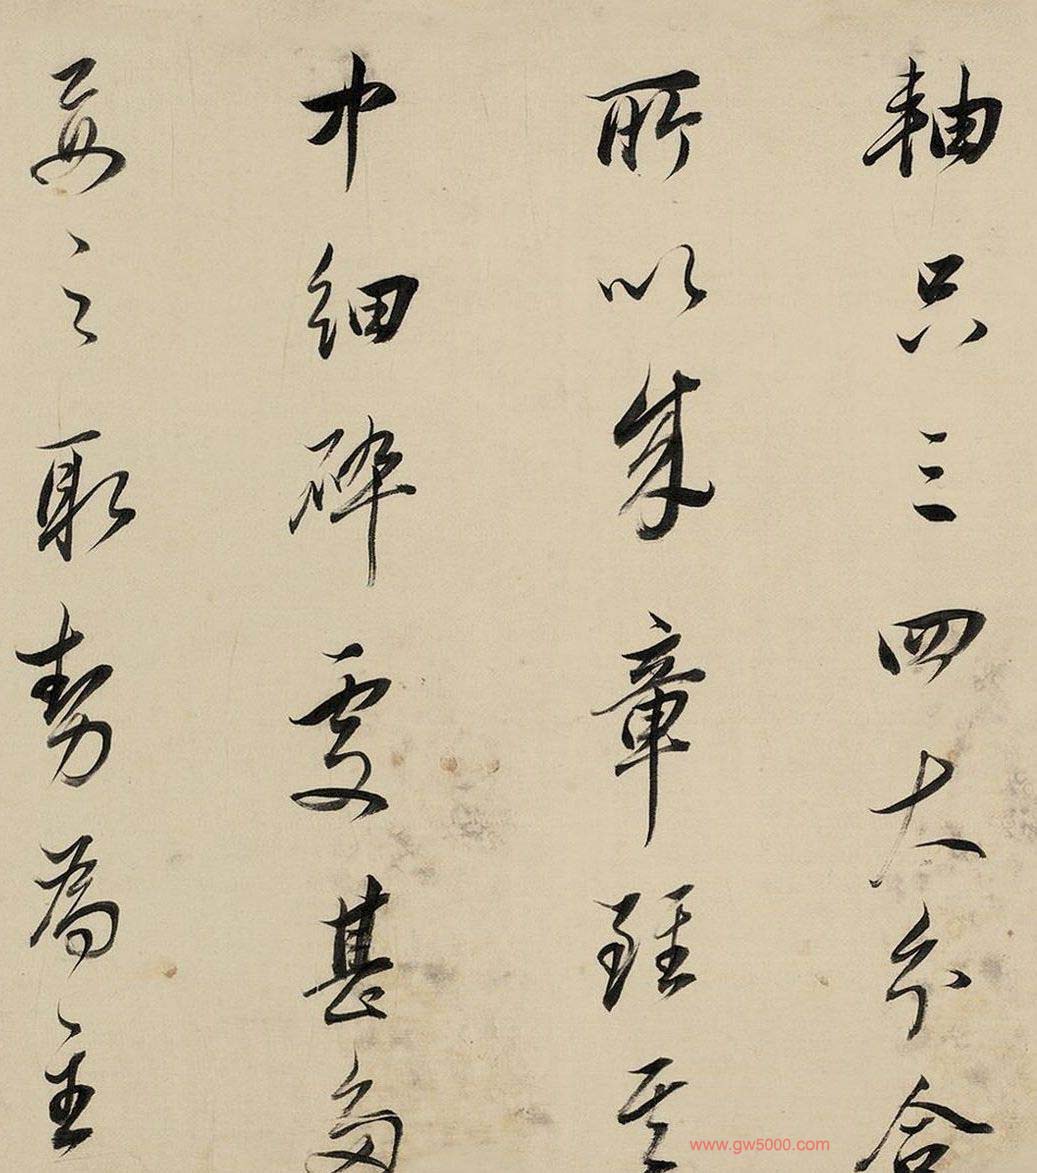 軸只三四大分合
所以成章雖其
中細碎處甚多
要之取勢為主
www.gw5000.com